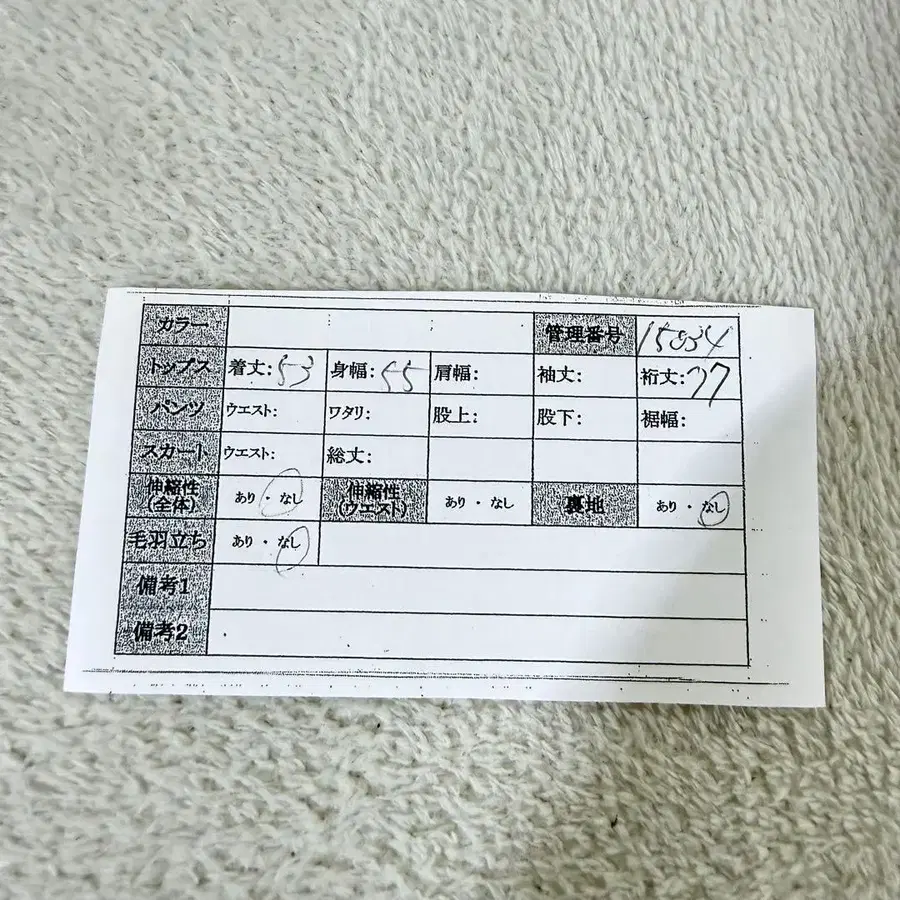 カラー 管理番号 15034
トップス 着丈:53 身幅:55 肩幅: 袖丈: 裄丈:77
パンツ ウエスト: ワタリ: 股上: 股下: 裾幅:
スカート ウエスト: 総丈:
伸縮性(全体) あり・なし 伸縮性(ウエスト) あり・なし 裏地 あり・なし
毛羽立ち あり・なし
備考1
備考2